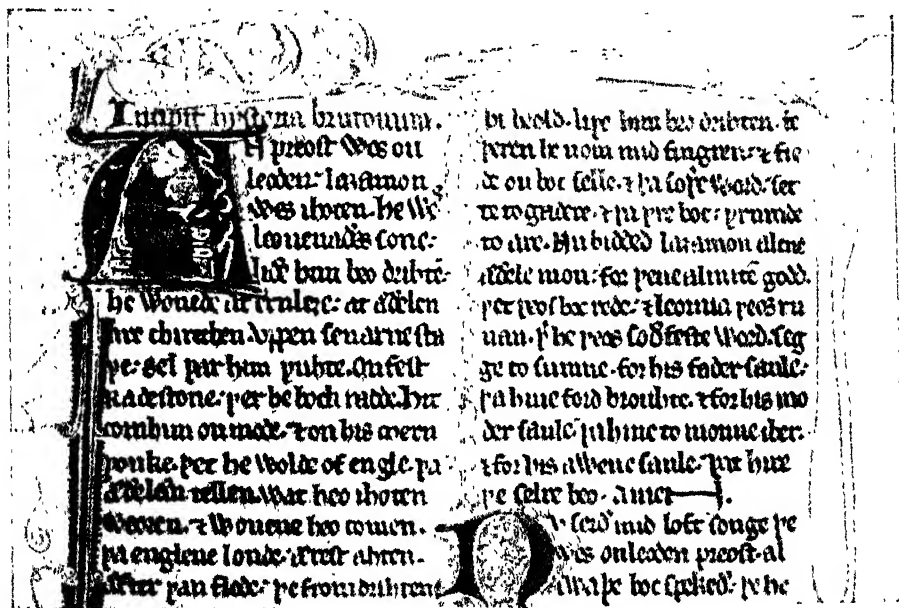 Incipit hystoria brutonum.
AN preost wes on
leoden. laȝamon
wes ihoten. he wes
leouenaðes sone.
liðe him beo drihtē.
he wonede at ernleȝe. at æðelen
are chirechen. vppen seuarne sta
þe. sel þar him þuhte. on fest
radestone. þer he bock radde. hit
com him on mode. ⁊ on his mern
þonke. þet he wolde of engle. þa
æðelæn tellen. wat heo ihoten
weoren. ⁊ wonene heo comen.
þa englene londe. ærest ahten.
æfter þan flode. þe from drihtene
bi heold. liþe him beo drihten. fe
þeren he nom mid fingren. ⁊ fie
de on boc felle. ⁊ þa soþe word. set
te to gadere. ⁊ þa þre boc. þrumde
to are. Nu biddeð laȝamon alcne
æðele mon. for þene almitē godd.
þet þeos boc rede. ⁊ leornia þeos ru
nan. þ̄ he þeos soðfeste word. seg
ge to sumne. for his fader saule.
þa hine forð brouhte. ⁊ for his mo
der saule. þa hine to monne iber.
⁊ for his awene saule. þat hire
þe selre beo. amen.
Nu seið mid loft songe þe
wes on leoden preost. al
swa þe boc spekeð. þe he